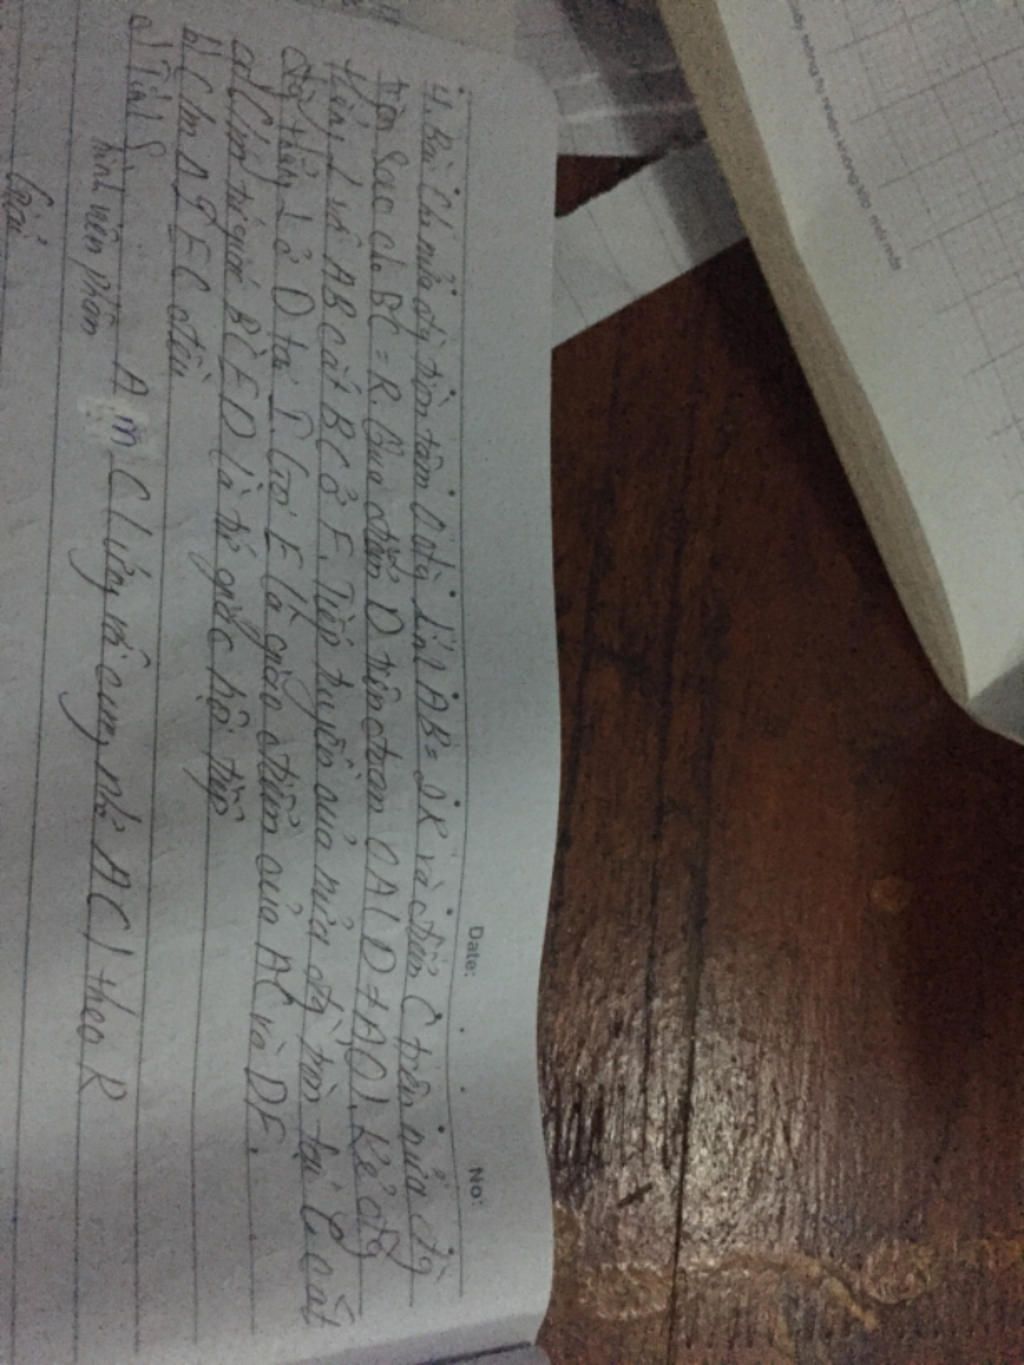 Date: No:
4. Bài Cho nửa đg tròn tâm O đg kính AB = 2R và điểm C trên nửa đg
tròn sao cho BC = R. Qua điểm D trên đoạn OA (D ≠ A,O). kẻ đg
thẳng ⊥ với AB cắt BC ở F. Tiếp tuyến của nửa đg tròn tại C cắt
đg thẳng ⊥ ở D tại I. Gọi E là giao điểm của AC và DF.
a) Cm tứ giác BCED là tứ giác nội tiếp
b) Cm Δ IEC đều
c) Tính S hình viên phân AmC (ứng với cung nhỏ AC) theo R
Giải